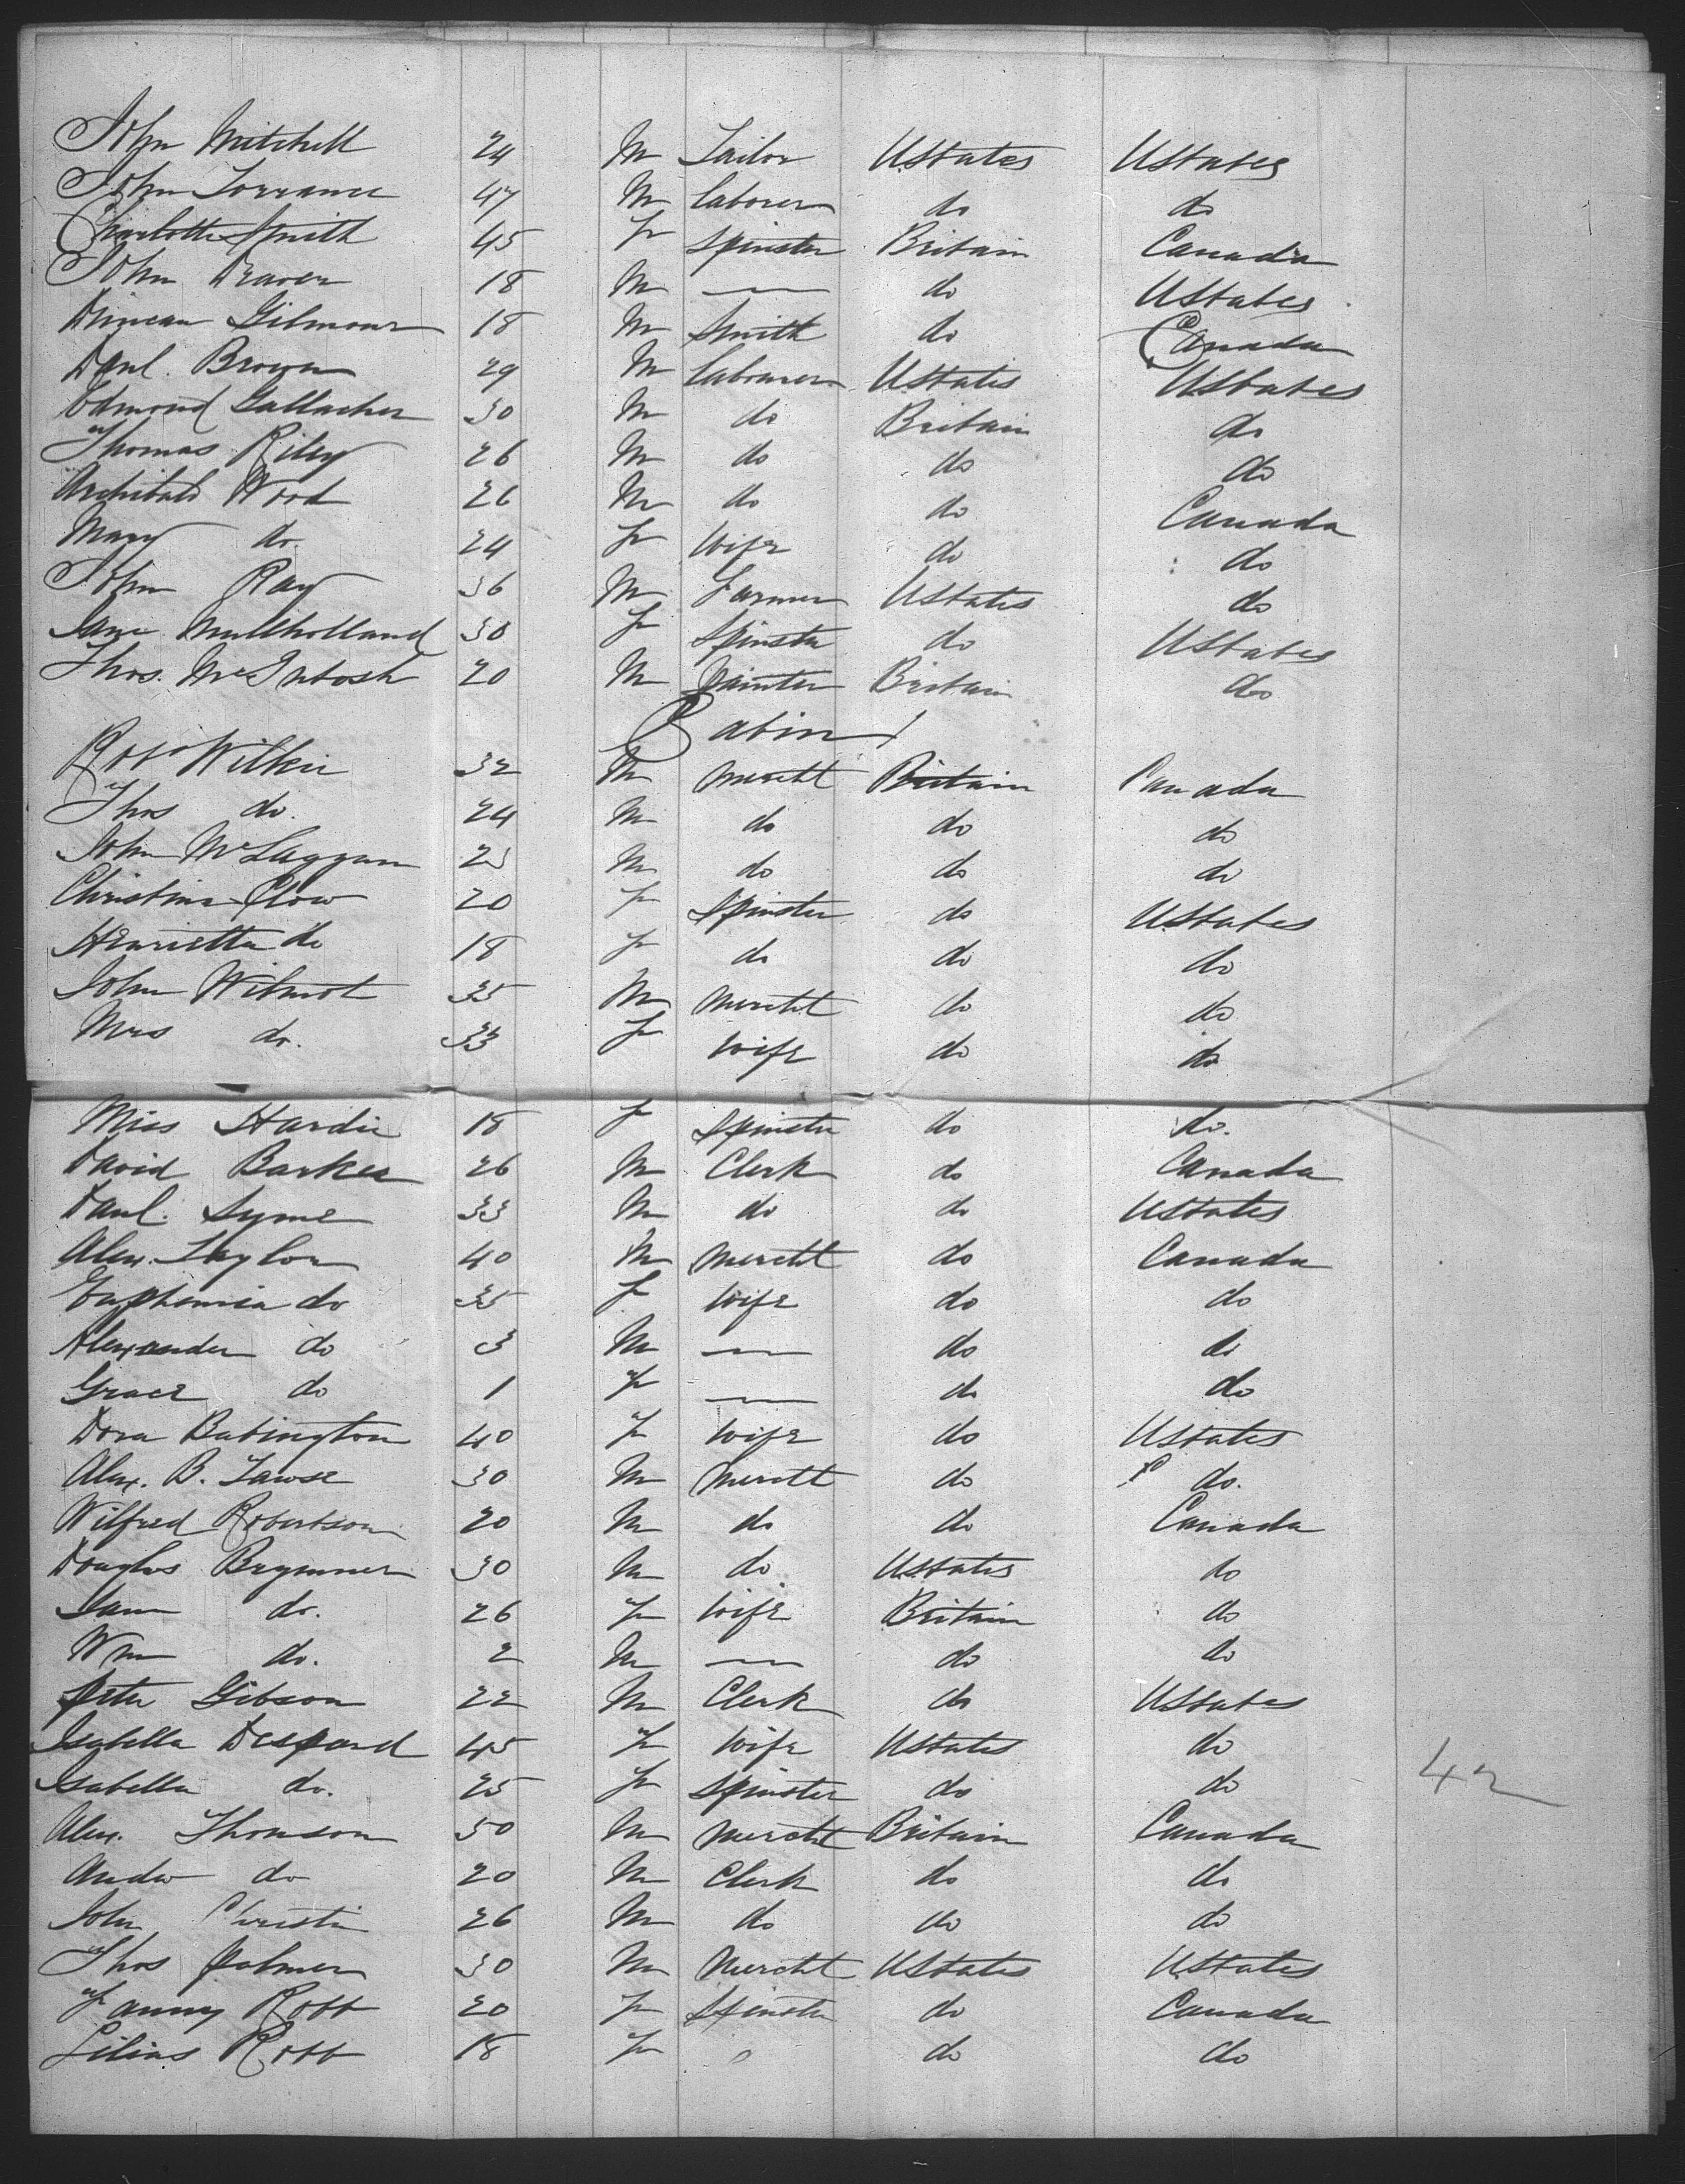 John Mitchell 24 M Tailor UStates UStates
John Torrance 47 M laborer do do
Charlotte Smith 45 F Spinster Britain Canada
John Deaver 18 M — do UStates
Duncan Gilmour 18 M Smith do Canada
Danl. Brown 29 M labourer UStates UStates
Edmond Gallacher 30 M do Britain do
Thomas Riley 26 M do do do
Archibald Wood 26 M do do Canada
Mary do 24 F Wife do do
John Ray 36 M Farmer UStates do
Jane Mullholland 30 F Spinster do UStates
Thos. McIntosh 20 M painter Britain do
Cabin
Robt Wilkie 32 M Mercht Britain Canada
Thos do. 24 M do do do
John McLaggan 23 M do do do
Christina Clow 20 F Spinster do UStates
Henrietta do 18 F do do do
John Wilmot 35 M Mercht do do
Mrs do. 33 F Wife do do
Miss Hardie 18 F Spinster do do.
David Barker 26 M Clerk do Canada
Danl. Syme 33 M do do UStates
Alex. Taylor 40 M Mercht do Canada
Euphemia do 35 F Wife do do
Alexander do 3 M — do do
Grace do 1 F — do do
Dora Babington 40 F Wife do UStates
Alex. B. Lawse 30 M Mercht do do.
Wilfred Robertson 20 M do do Canada
Douglas Brymner 30 M do UStates do
Jane do. 26 F Wife Britain do
Wm do. 2 M — do do
Peter Gibson 22 M Clerk do UStates
Isabella Despard 45 F Wife UStates do
Isabella do. 25 F Spinster do do
42
Alex. Thomson 50 M Mercht Britain Canada
Andw do 20 M Clerk do do
John Christie 26 M do do do
Thos Palmer 30 M Mercht UStates UStates
Fanny Robb 20 F Spinster do Canada
Lilias Robb 18 F do do